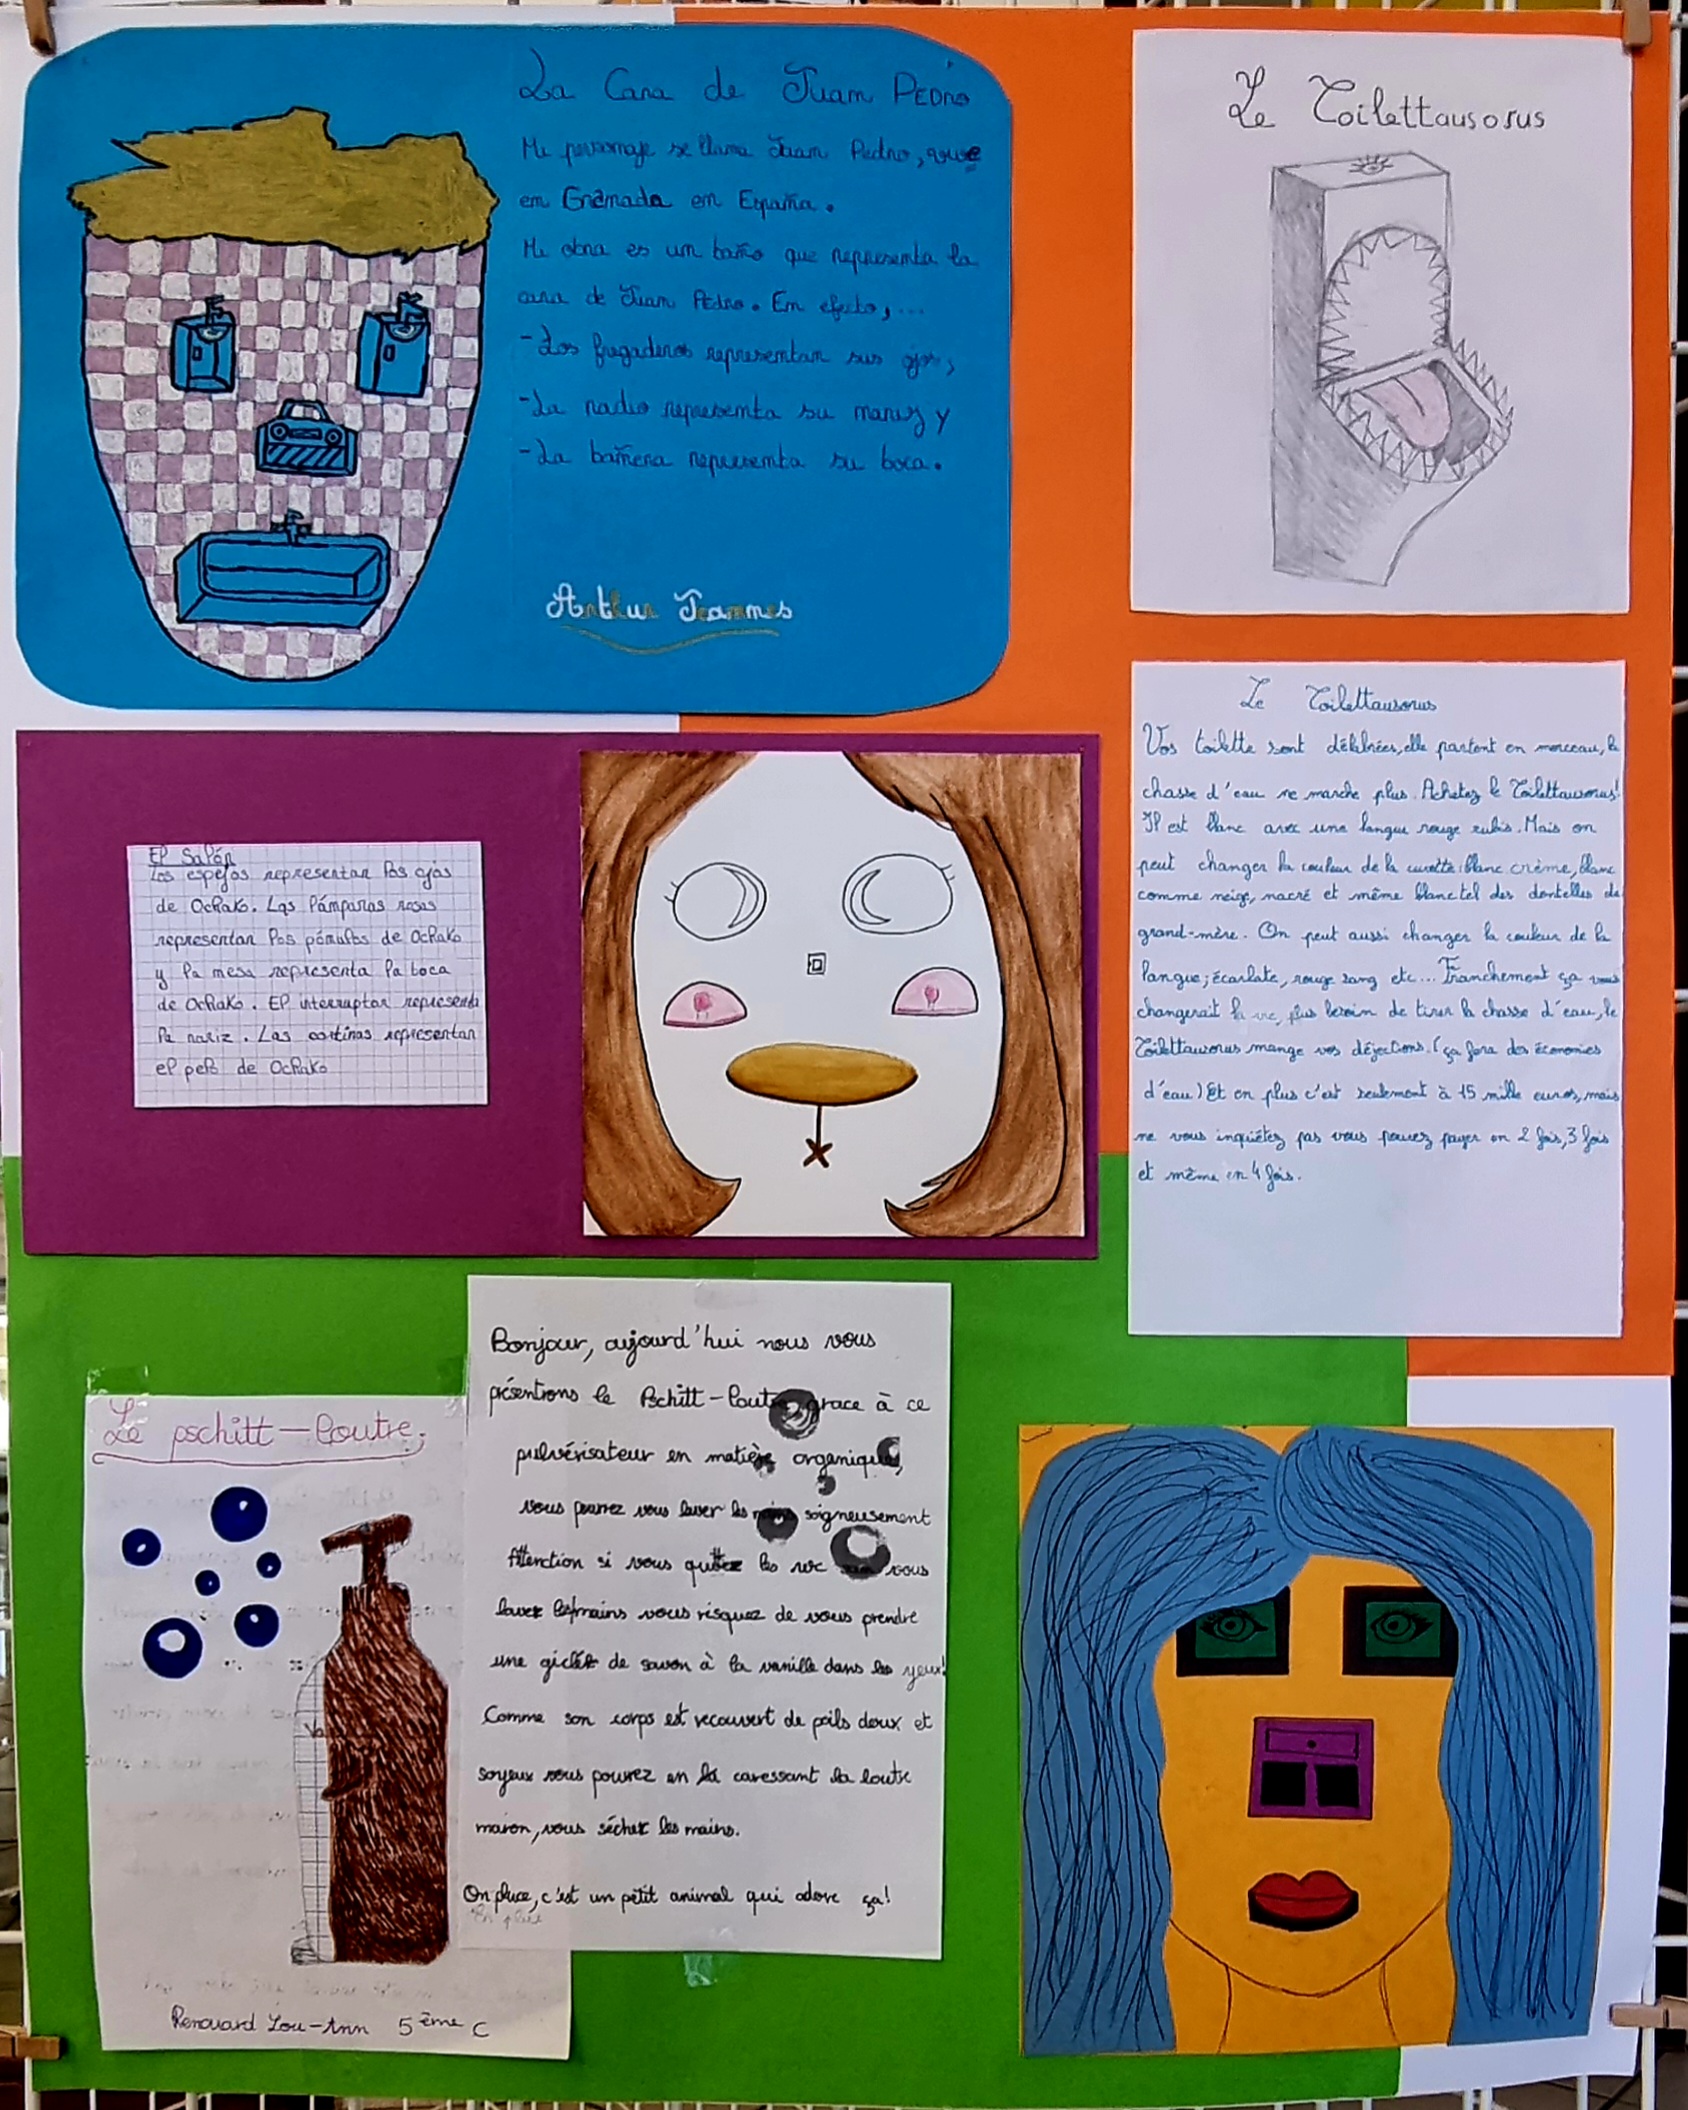 La Cara de Juan PEDro
Mi personaje se llama Juan Pedro, vive
en Granada en España.
Mi obra es un baño que representa la
cara de Juan PEdro. En efecto,...
-Los fregaderos representan sus ojos,
-La radio representa su nariz y
-La bañera representa su boca.
Artur Jeannes
Le Toilettausorus
Le Toilettausorus
Vos toilette sont délabrées, elle partent en morceau, la
chasse d'eau ne marche plus. Achetez le Toilettausorus!
Il est blanc avec une langue rouge rubis. Mais on
peut changer la couleur de la cuvette: blanc crème, blanc
comme neige, nacré et même blanc tel des dentelles de
grand-mère. On peut aussi changer la couleur de la
langue; écarlate, rouge sang etc... Franchement ça vous
changerait la vie, plus besoin de tirer la chasse d'eau, le
Toilettausorus mange vos déjections. (ça fera des économies
d'eau) Et en plus c'est seulement à 15 mille euros, mais
ne vous inquiétez pas vous pouvez payer en 2 fois, 3 fois
et même en 4 fois.
El Salón
Los espejos representan los ojos
de Ochako. Las lámparas rosas
representan los pómulos de Ochako
y la mesa representa la boca
de Ochako. El interruptor representa
la nariz. Las cortinas representan
el pelo de Ochako
Bonjour, aujourd'hui nous vous
présentrons le Pschitt-loutre, grace à ce
pulvérisateur en matière organique,
vous pourrez vous laver les mains soigneusement
Attention si vous quittez les wc vous
lavez les mains vous risquez de vous prendre
une giclée de savon à la vanille dans les yeux!
Comme son corps est recouvert de poils doux et
soyeux vous pouvez en la caressant la loutre
maron, vous séchez les mains.
On pluce, c'est un petit animal qui adore ça!
En plus
Le pschitt-loutre;
Renouard Lou-Ann 5ème C